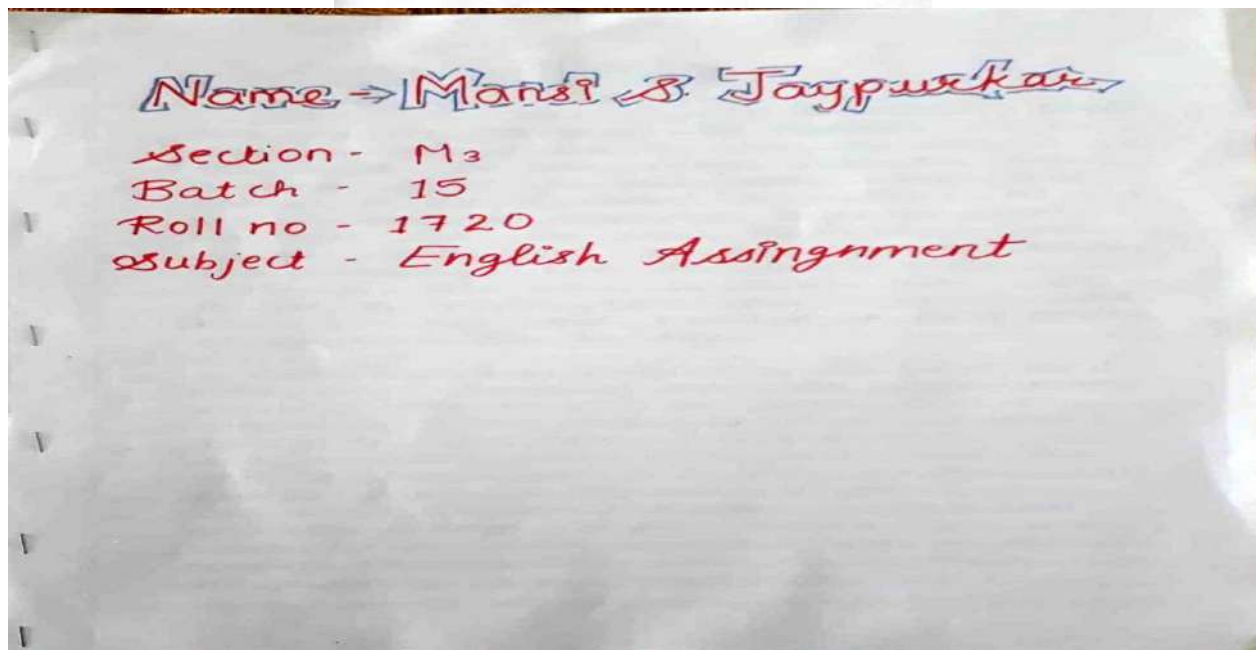 Name → Mansi S Jaypurkar
Section - M3
Batch - 15
Roll no - 1720
Subject - English Assingnment